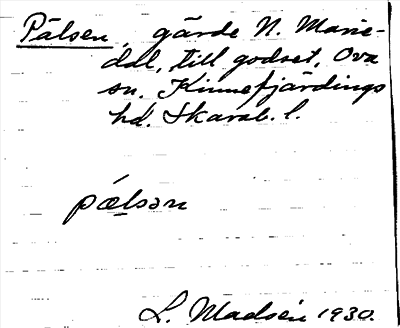 Pålsen, gärde N. Marie-
dal, till godset, Ova
sn. Kinnefjärdings
hd. Skarab. l.
pǽl̠sən
L. Madsén 1930.